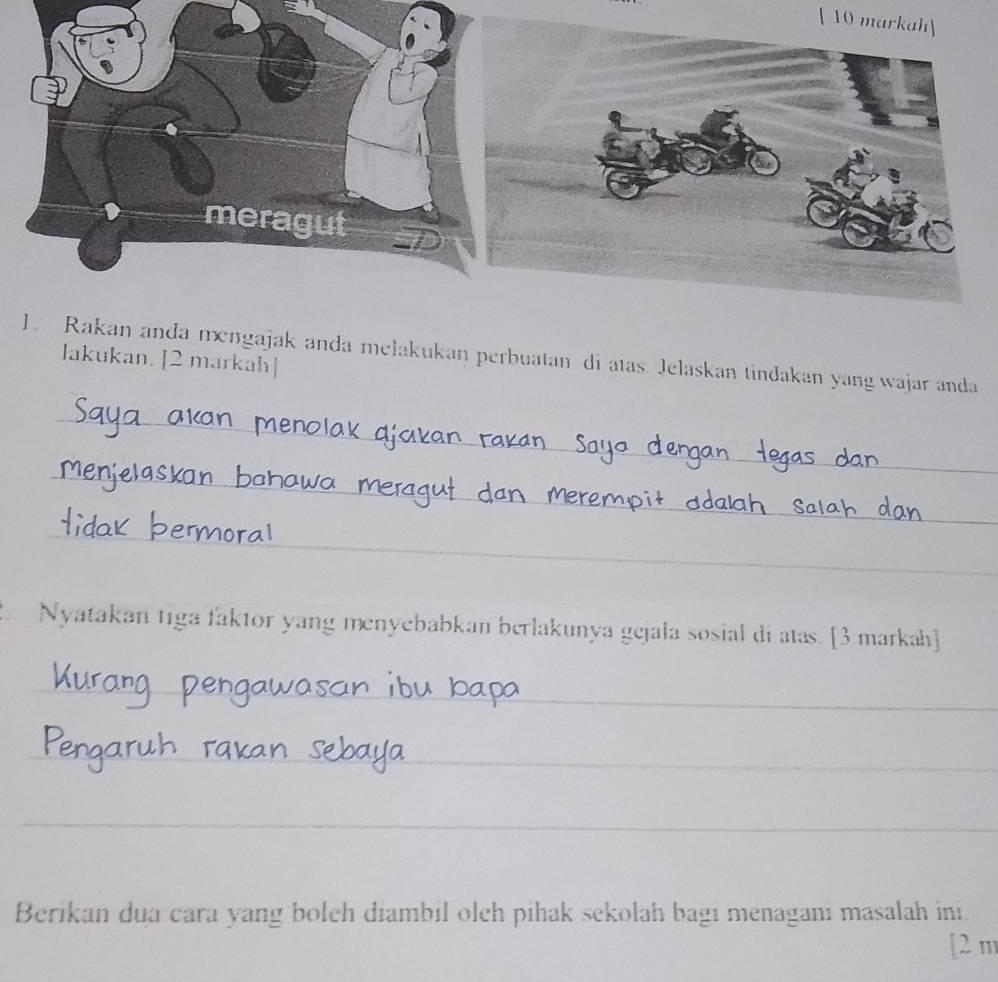 [ 10 markah]
meragut
1. Rakan anda mengajak anda melakukan perbuatan di atas. Jelaskan tindakan yang wajar anda
lakukan. [2 markah]
Saya akan menolak ajakan rakan saya dengan tegas dan
menjelaskan bahawa meragut dan merempit adalah salah dan
tidak bermoral
Nyatakan tiga faktor yang menyebabkan berlakunya gejala sosial di atas. [3 markah]
Kurang pengawasan ibu bapa
Pengaruh rakan sebaya
Berikan dua cara yang boleh diambil oleh pihak sekolah bagi menagani masalah ini.
[2 m